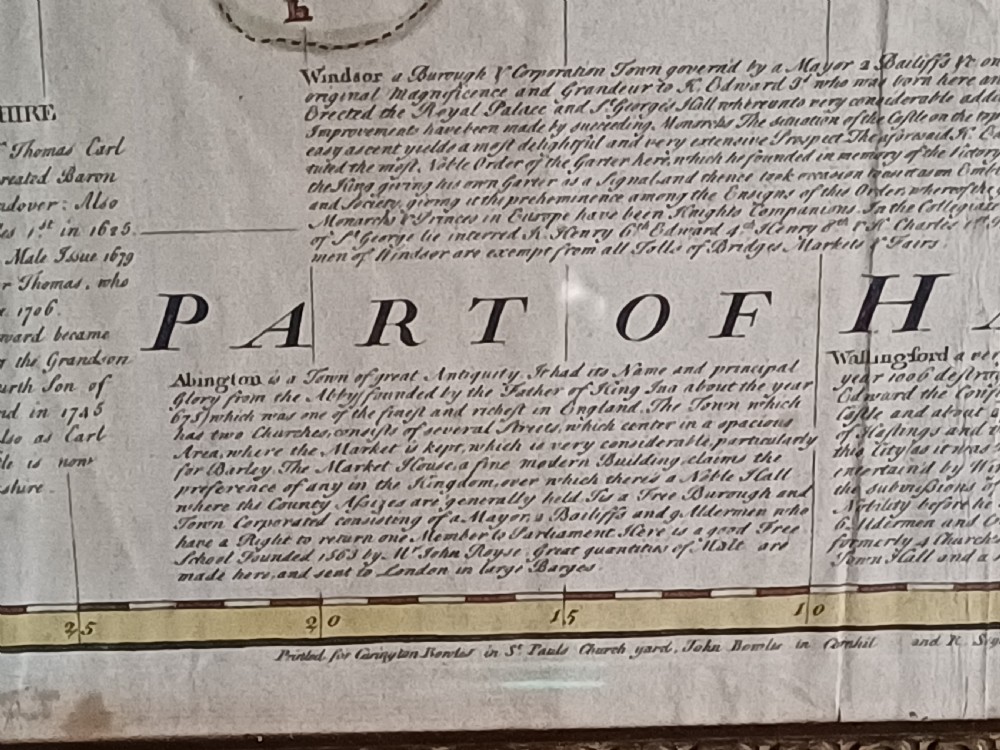 h
Windsor a Burough & Corporation Town govern'd by a Mayor 2 Bailiffs &c. on
original Magnificence and Grandeur to K. Edward 3d who was born here an
Erected the Royal Palace and St. George's Hall whereunto very considerable addi
Improvements have been made by succeeding Monarchs The situation of the Castle on the top
easy ascent yields a most delightful and very extensive Prospect The aforesaid K. E
the most Noble Order of the Garter here, which he founded in memory of the Victory
the King giving his own Garter as a Signal and thence took occasion
and Society, giving it the preheminence among the Ensigns of this Order, whereof the
Monarchs & Princes in Europe have been Knights Companions. In the Collegiate
of St. George lie interred K. Henry 6th Edward 4th Henry 8th & K. Charles 1st
men of Windsor are exempt from all Tolls of Bridges Markets & Fairs
HIRE
Thomas Earl
reated Baron
ndover: Also
1st in 1625.
Male Issue 1679
r Thomas, who
1706.
ward became
the Grandson
urth Son of
nd in 1745
lso as Earl
le is now
shire
PART OF HA
Abington is a Town of great Antiquity. It had its Name and principal
Glory from the Abby founded by the Father of King Ina about the year
675) which was one of the finest and richest in England. The Town which
has two Churches, consists of several Streets, which center in a spacious
Area, where the Market is kept, which is very considerable, particularly
for Barley. The Market House, a fine modern Building, claims the
preference of any in the Kingdom, over which there's a Noble Hall
where the County Assizes are generally held Tis a Free Burough and
Town Corporated consisting of a Mayor, 2 Bailiffs and 9 Aldermen who
have a Right to return one Member to Parliament Here is a good Free
School Founded 1563 by Mr. John Royse. Great quantities of Malt are
made here, and sent to London in large Barges.
Wallingford a ver
year 1006 destroy
Edward the Conf
Castle and about
of Hastings and
this City (as it was
entertain'd by Wi
the submissions of
Nobility before he
6 Aldermen and
formerly 4 Churches
Town Hall and a
25 20 15 10
Printed for Carington Bowles in St. Pauls Church yard, John Bowles in Cornhil and R. Say